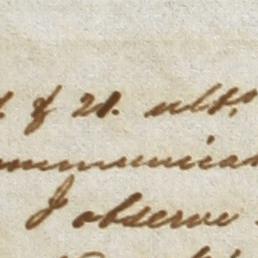 & 21. ulto.
ommunica
I observe